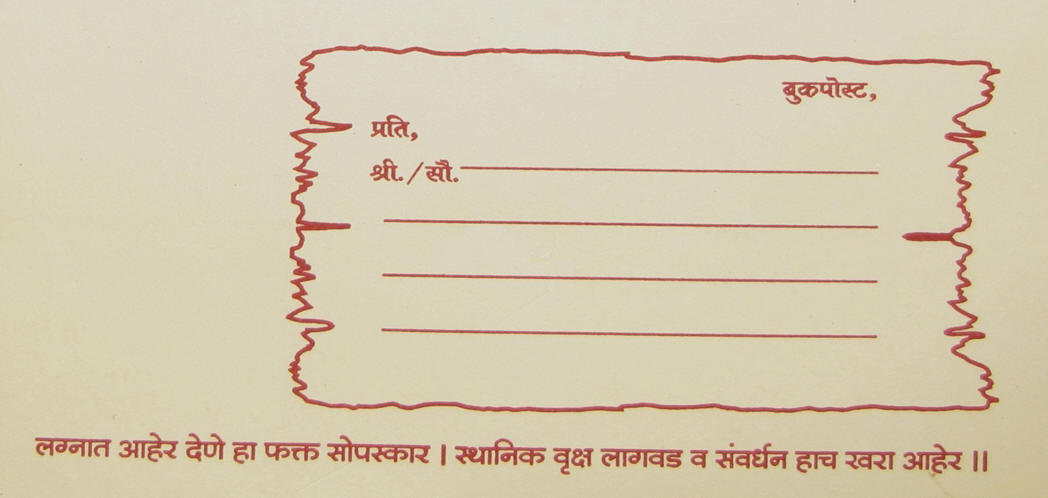 बुकपोस्ट,
प्रति,
श्री./सौ.
लग्नात आहेर देणे हा फक्त सोपस्कार । स्थानिक वृक्ष लागवड व संवर्धन हाच खरा आहेर ॥